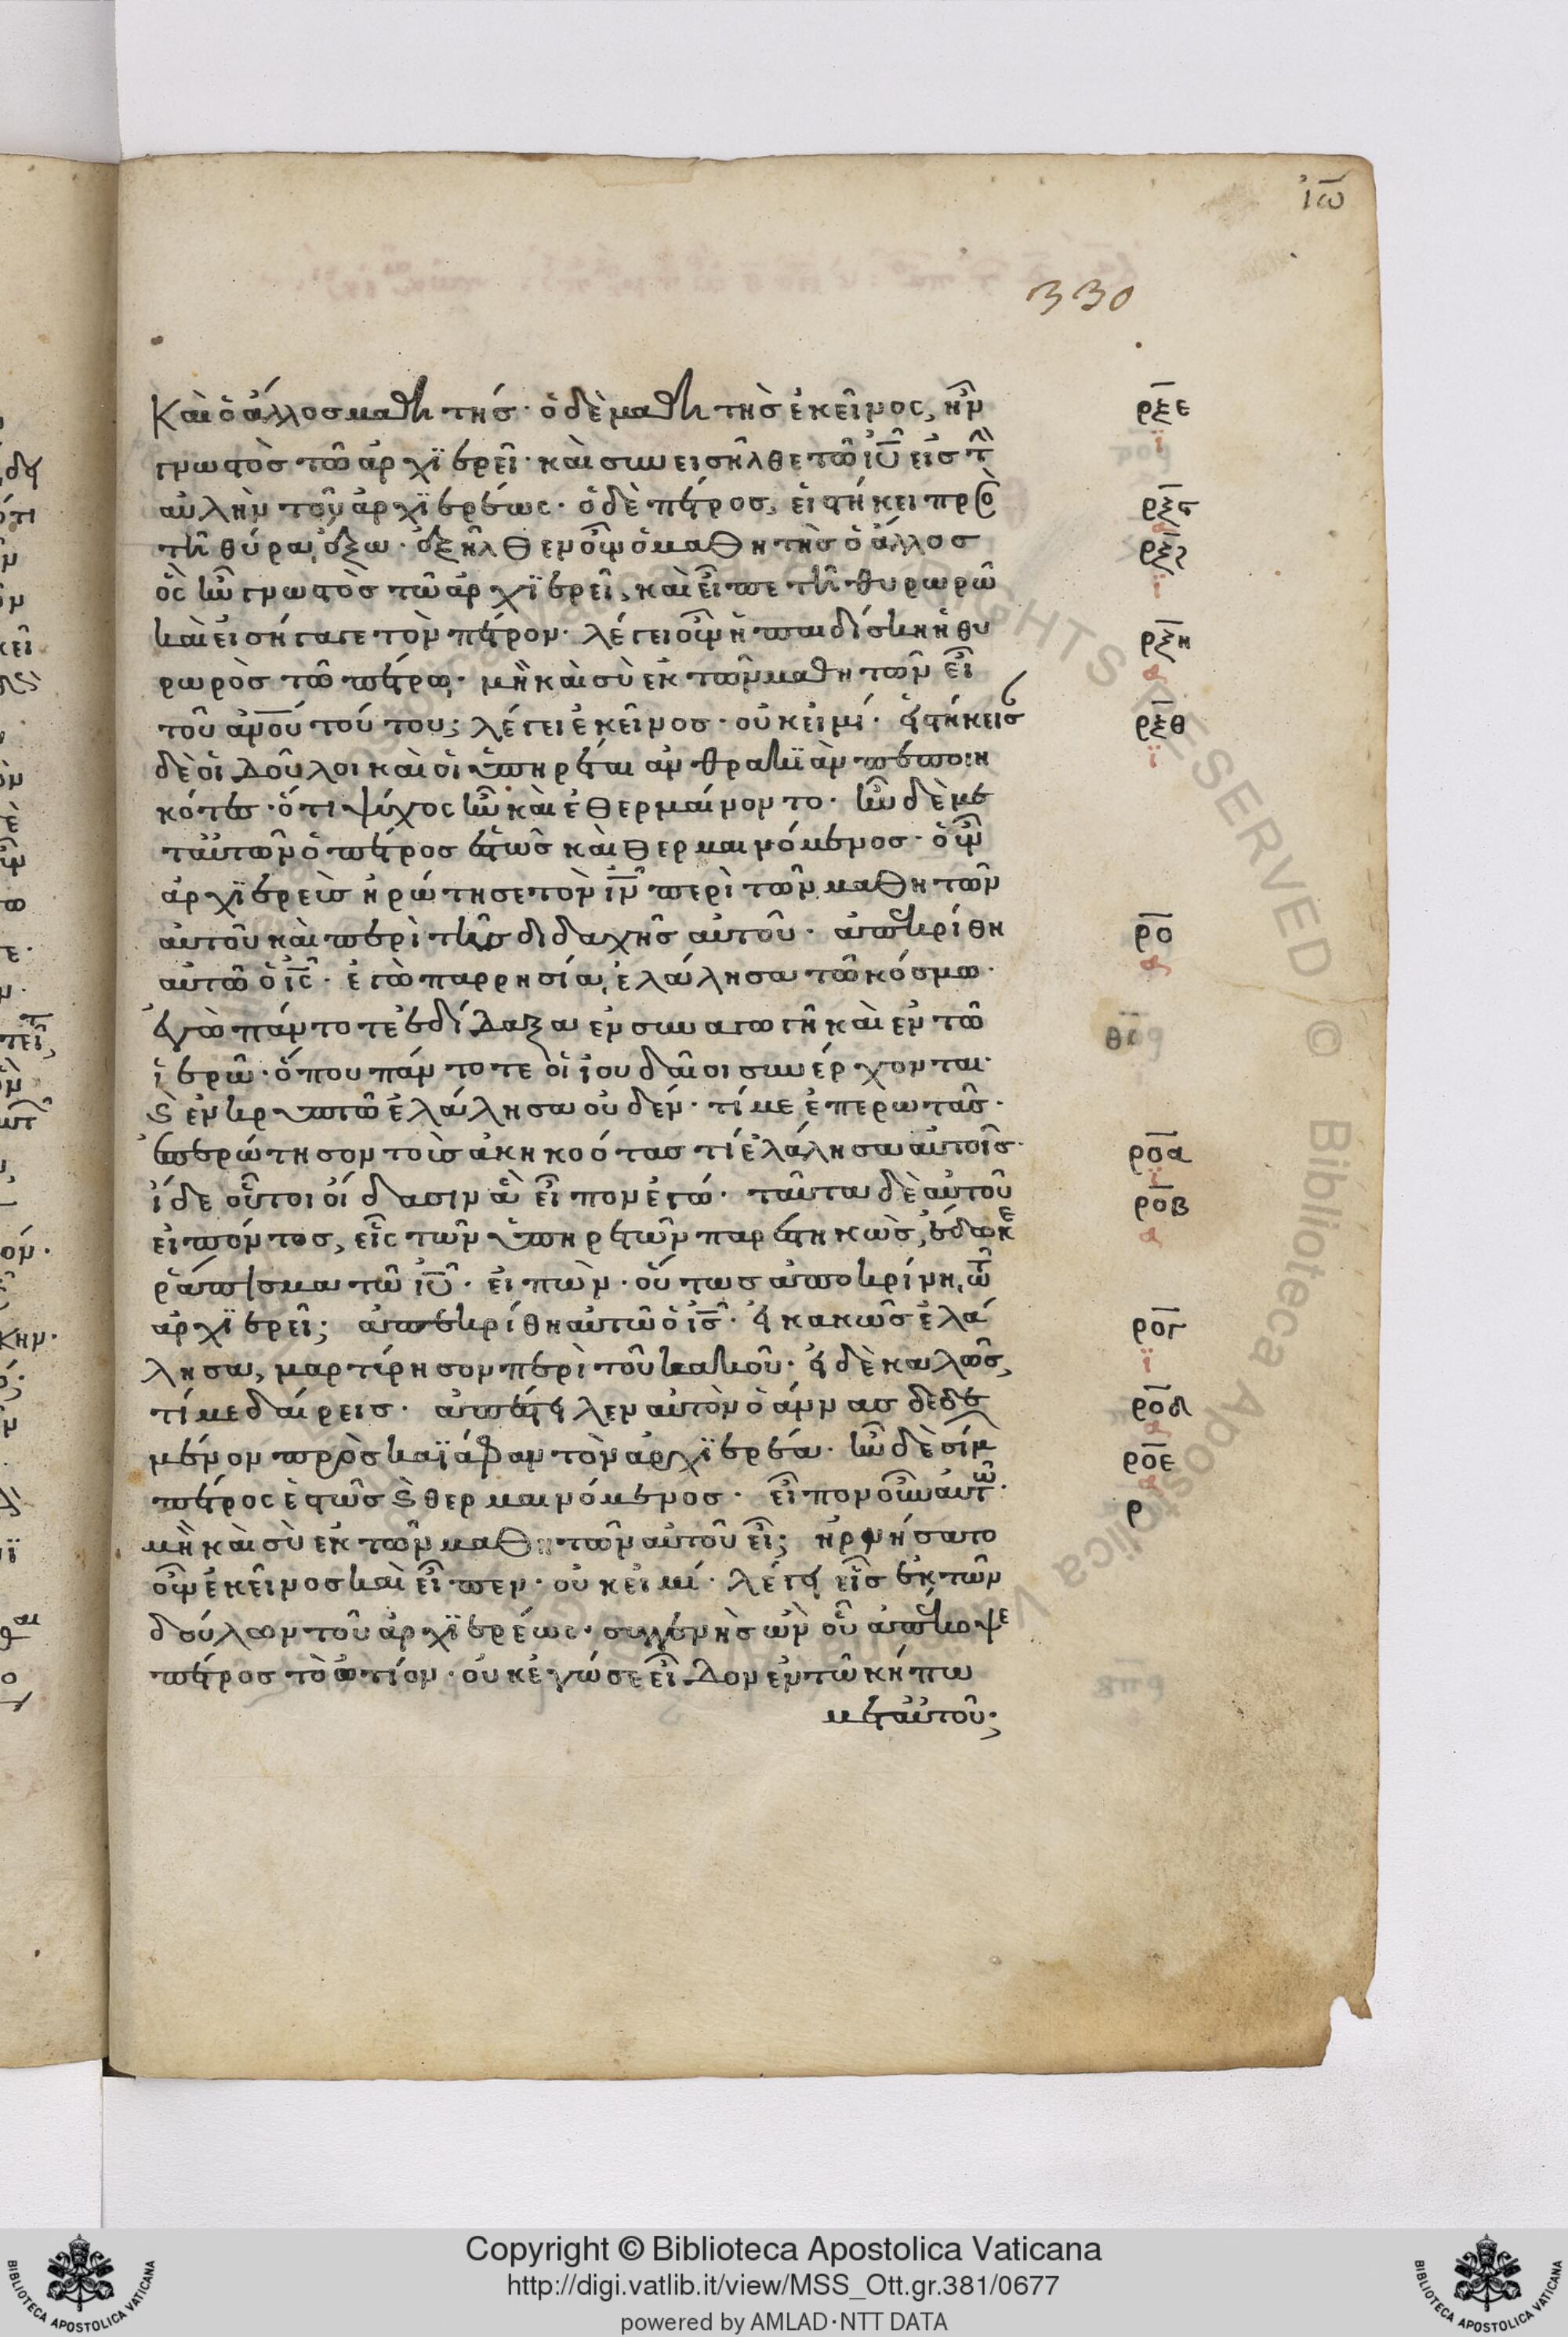 ἰω̅
330
Καὶ ὁ ἄλλος μαθητής· ὁ δὲ μαθητὴς ἐκεῖνος, ἦν
γνωστὸς τῶ ἀρχϊερεῖ· καὶ συνεισῆλθε τῶ ἰυ̅ εἰς τὴ
αὐλὴν τοῦ ἀρχϊερέως· ὁ δὲ πέτρος, εἱστήκει πρὸ
τῆ θύρα ἔξω· ἐξῆλθεν οὖν ὁ μαθητὴς ὁ ἄλλος
ὃς ἦν γνωστὸς τῶ ἀρχϊερεῖ, καὶ εἶπε τῆ θυρωρῶ
καὶ εἰσήγαγε τὸν πέτρον· λέγει οὖν ἡ παιδίσκη ἡ θυ
ρωρὸς τῶ πέτρω· μὴ καὶ σὺ ἐκ τῶν μαθητῶν εἶ
τοῦ ανου̅ τούτου; λέγει ἐκεῖνος· οὐκ εἰμί· εἱστήκεισ
δὲ οἱ δοῦλοι καὶ οἱ ὑπηρέται ἀνθρακϊὰν πεποιη
κότες· ὅτι ψύχος ἦν καὶ ἐθερμαίνοντο· ἦν δὲ με
τ αὐτῶν ὁ πέτρος ἑστὼς καὶ θερμαινόμενος· ὁ οὖν
ἀρχϊερεὺς ἠρώτησε τὸν ιν̅ περὶ τῶν μαθητῶν
αὐτοῦ καὶ περὶ τῆς διδαχῆς αὐτοῦ· ἀπεκρίθη
αὐτῶ ὁ ις̅· ἐγὼ παρρησία ἐλάλησα τῶ κόσμω·
ἐγὼ πάντοτε ἐδίδαξα ἐν συναγωγῆ καὶ ἐν τῶ
ἱερῶ· ὅπου πάντοτε οἱ ἰουδαῖοι συνέρχονται·
ϗ ἐν κρυπτῶ ἐλάλησα οὐδέν· τί με ἐπερωτᾶς·
ἐπερώτησον τοὺς ἀκηκοότας τί ἐλάλησα αὐτοῖς·
ἴδε οὗτοι οἴδασιν ἃ εἶπον ἐγώ· ταῦτα δὲ αὐτοῦ
εἰπόντος, εἷς τῶν ὑπηρετῶν παρεστηκὼς, ἔδωκε
ῥάπισμα τῶ ιυ̅· εἰπὼν· οὕτως ἀποκρίνη τῶ
ἀρχϊερεῖ; ἀπεκρίθη αὐτῶ ὁ ις̅· εἰ κακῶς ἐλά
λησα, μαρτύρησον περὶ τοῦ κακοῦ· εἰ δὲ καλῶς,
τί με δαίρεις· ἀπέστειλεν αὐτὸν ὁ ἄννας δεδε
μένον πρὸς καϊάφαν τὸν ἀρχϊερέα· ἦν δὲ σίμ
πέτρος ἑστὼς ϗ θερμαινόμενος· εἶπον οὖν αὐτῶ·
μὴ καὶ σὺ ἐκ τῶν μαθητῶν αὐτοῦ εἶ; ἠρνήσατο
οὖν ἐκεῖνος καὶ εἶπεν· οὐκ εἰμί· λέγει εἷς ἐκ τῶν
δούλων τοῦ ἀρχϊερέως· συγγενὴς ὢν οὗ ἀπέκοψε
πέτρος τὸ ὠτίον· οὐκ ἐγώ σε εἶδον ἐν τῶ κήπω
μετ αὐτοῦ;
ρξε
ϊ
ρξϛ
α
ρξζ
ϊ
ρξη
α
ρξθ
ϊ
ρο
α
θϊ
ροα
ϊ
ροβ
α
ρογ
ϊ
ροδ
α
ροε
α
ρ
Copyright © Biblioteca Apostolica Vaticana
http://digi.vatlib.it/view/MSS_Ott.gr.381/0677
powered by AMLAD·NTT DATA
BIBLIOTECA APOSTOLICA VATICANA
BIBLIOTECA APOSTOLICA VATICANA